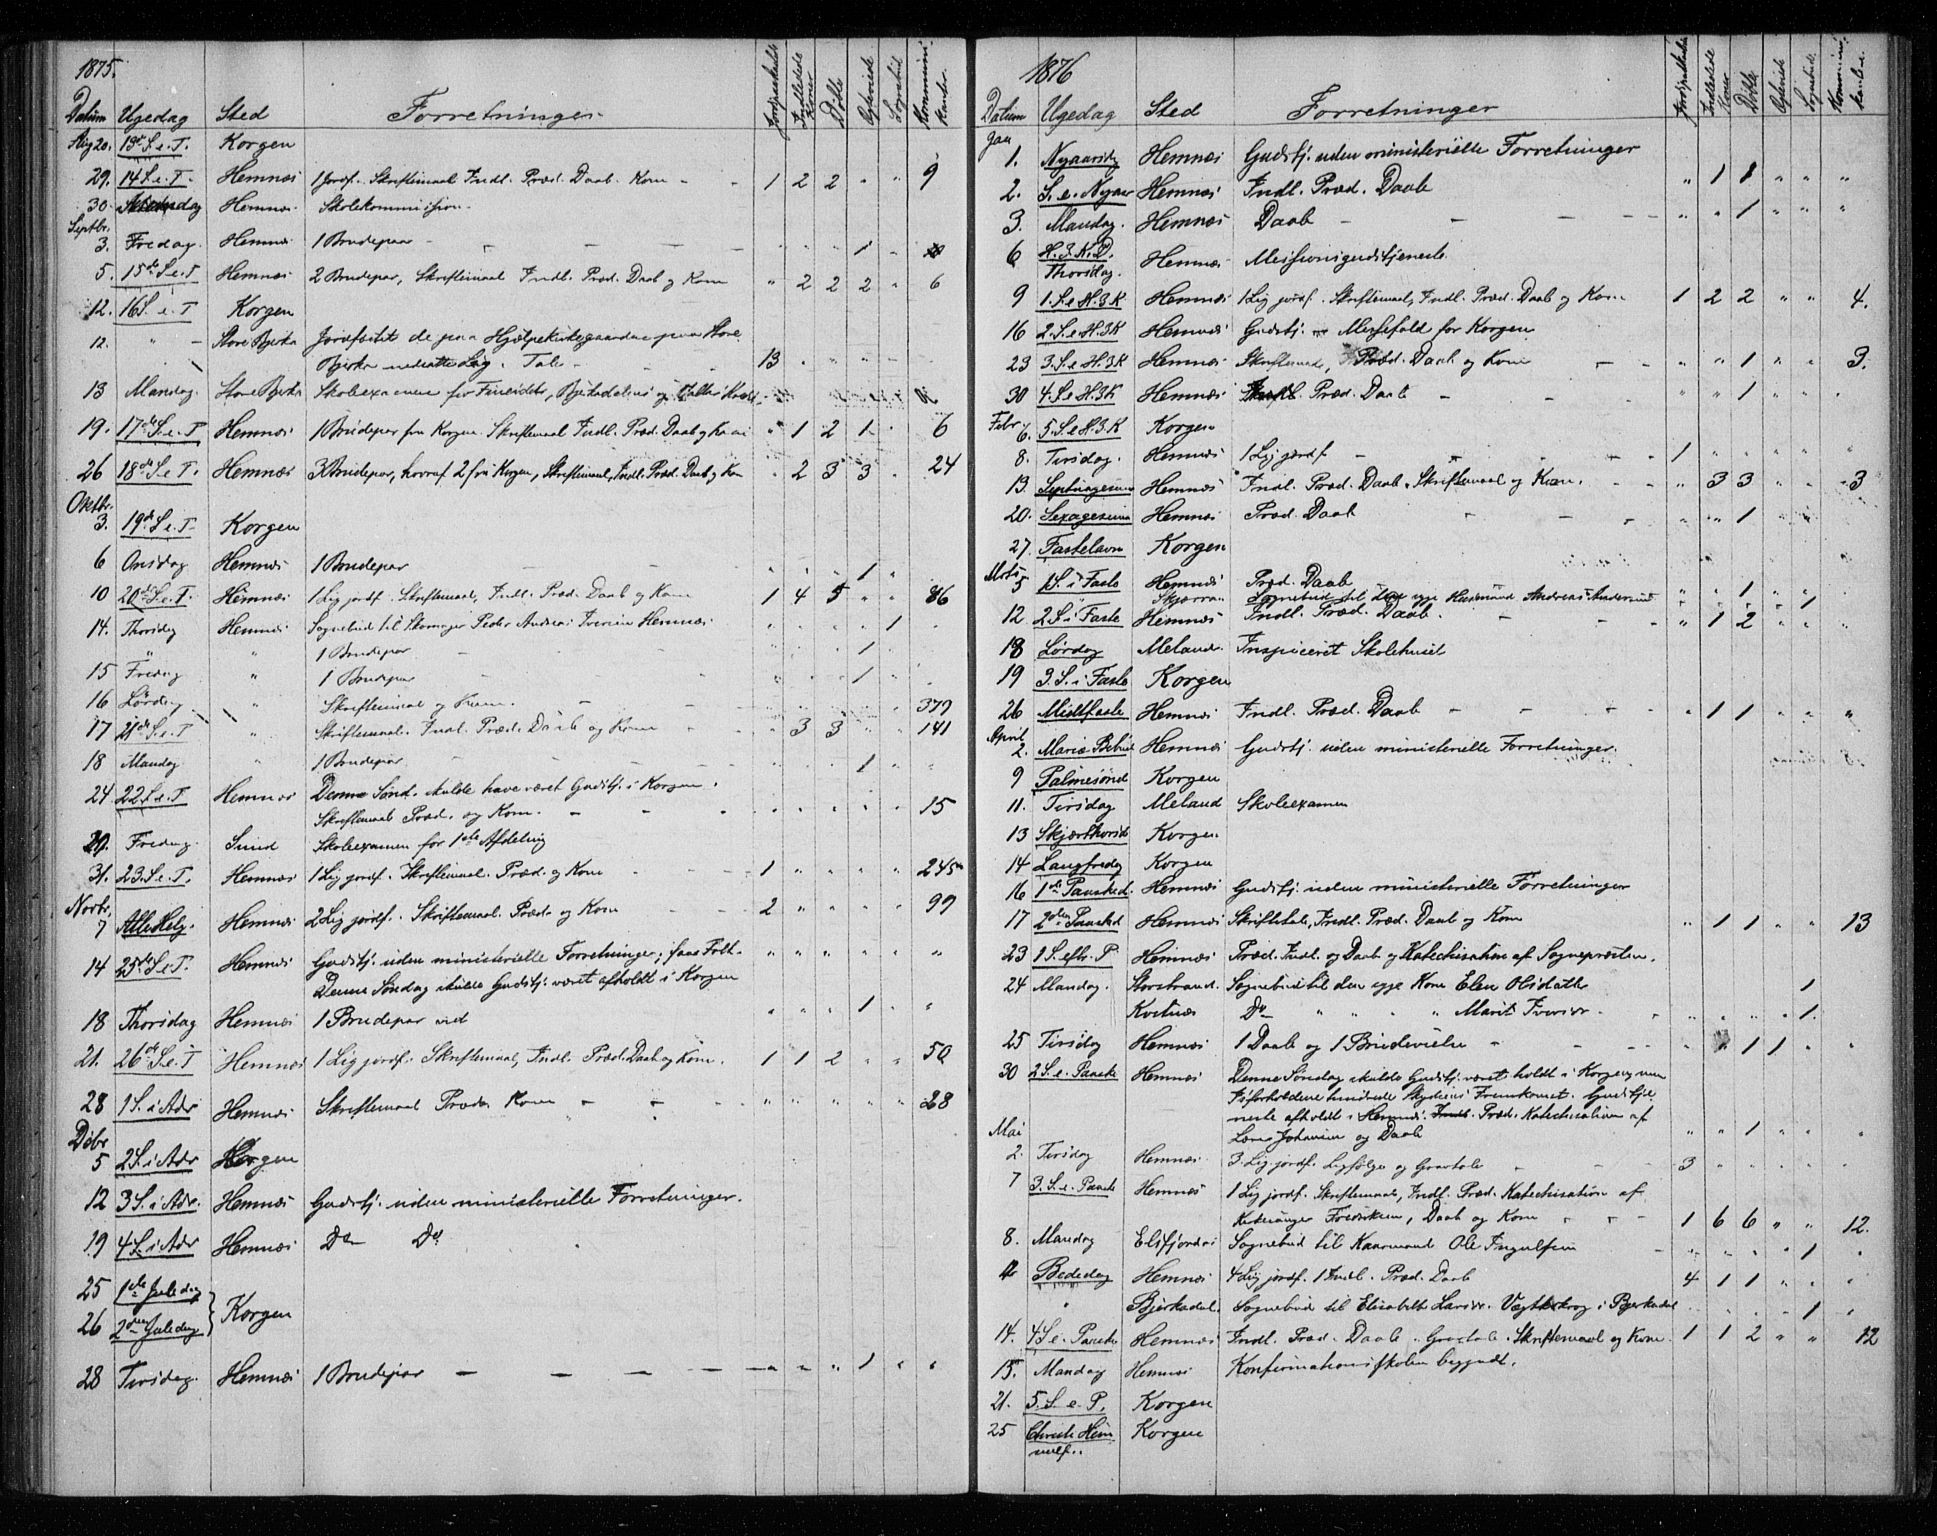 1875.
Datum Ugedag Sted Forretninger Jordpaakastede Indledede Koner Døbte Ægteviede Sognebud Kommunikanter
Aug 20. 13de S. e. T. Korgen
29. 14 S. e. T. Hemnæs 1 Jordf. Skriftemaal Indl. Præd. Daab. Kom - - 1 2 2 " " 9
30. Mandag Hemnæs Skolekommission
Septbr.
3. Fredag. Hemnæs 1 Brudepar - - - - " " " 1 "
5. 15de S. e. T Hemnæs 2 Brudepar, Skriftemaal Indl. Præd. Daab og Kom " 2 2 2 " 6
12. 16 S. e. T Korgen
12. " - Store Bjerka Jordfæstet de paa Hjælpekirkegaarden paa Store
Bjerka nedsatte Lig. Tale - - - 13 " " " " "
13 Mandag. Store Bjerka Skoleexamen for Fineidets, Bjerkadalens og
19. 17de S. e. T Hemnæs 1 Brudepar fra Korgen. Skriftemaal Indl. Præd. Daab og Kom " 1 2 1 " 6
26 18de S. e. T. Hemnæs 3 Brudepar, hvoraf 2 fra Korgen, Skriftemaal, Indl. Præd. Daab og Kom " 2 3 3 " 24
Oktbr.
3. 19de S. e. T Korgen
6 Onsdag Hemnæs 1 Brudepar - - - " " " 1 "
10 20de S. e. T. Hemnæs 1 Lig jordf. Skriftemaal, Indl. Præd. Daab og Kom 1 4 5 " " 86
14. Thorsdag Hemnæs Sognebud til Skomager Peder Andreas Iversen Hemnæs " " " " 1 "
" " 1 Brudepar - - - " " " 1 "
15 Fredag " 1 Brudepar - - - " " " 1 "
16 Lørdag " Skriftemaal og Kom. - - - " " " " " 379
17 21de S. e. T " Skriftemaal. Indl. Præd. Daab og Kom - - " 3 3 " " 141
18 Mandag " 1 Brudepar - - - " " " 1 " "
24 22 S. e. T Hemnæs Denne Sønd. skulde have været Gudstj. i Korgen.
Skriftemaal Præd. og Kom. - - - " " " " " 15
29. Fredag. Sund Skoleexamen for 1ste Afdeling
31. 23. S. e. T. Hemnæs 1 Lig jordf. Skriftemaal. Præd. og Kom - - 1 " " " " 245
Novbr.
7 Alle Helg. Hemnæs 2 Lig jordf. Skriftemaal. Præd. og Kom - - 2 " " " " 99
14 25de S. e. T. Hemnæs Gudstj. uden ministerielle Forretninger; faa Folk. " " " " " "
Denne Søndag skulde Gudstj. været afholdt i Korgen
18 Thorsdag Hemnæs 1 Brudepar " " " 1 " "
21. 26de S. e. T Hemnæs 1 Lig jordf. Skriftemaal, Indl. Præd. Daab og Kom. 1 1 2 " " 50
28 1 S. i Adv Hemnæs Skriftemaal Præd. Kom - - - " " " " " 28
Dcbr
5 2 S. i Adv Korgen
12 3 S. i Adv. Hemnæs Gudstj. uden ministerielle Forretninger.
19 4 S. i Adv Hemnæs Do Do
25 1ste Juledag
26 2den Juledag } Korgen
28 Tirsdag. Hemnæs 1 Brudepar - - - - - " " " 1 " "
1876
Datum Ugedag Sted Forretninger Jordpaakastede Indledede Koner Døbte Ægteviede Sognebud. Kommunikanter
Jan
1. Nyaarsdg Hemnæs Gudstj. uden ministerielle Forretninger
2. S. e. Nyaar Hemnæs Indl. Præd. Daab " 1 1 " " "
3. Mandag. Hemnæs Daab - - - " " 1 " " "
6 H. 3 K. D. Thorsdag. Hemnæs Missionsgudstjeneste
9 1. S. e H. 3 K Hemnæs 1 Lig jordf. Skriftemaal, Indl. Præd. Daab og Kom 1 2 2 " " 4.
16 2. S. e H. 3 K Hemnæs Gudstj. Messefald for Korgen
23 3. S. e H. 3 K Hemnæs Skriftemaal, Præd. Daab og Kom - - " " 1 " " 3.
30 4. S. e H. 3 K Hemnæs Præd. Daab - - - " " 1 " " "
Febr
6. 5. S. e H. 3. K Korgen
8. Tirsdag. Hemnæs 1 Lig jordf - - - 1 " " " " "
13. Septuagesima Hemnæs Indl. Præd. Daab. Skriftemaal og Kom. - - " 3 3 " " 3
20. Sexagesima Hemnæs Præd. Daab - - - " " 1 " "
27. Fastelavn Korgen
Marts
5 1 S. i Faste Hemnæs Præd. Daab " " 1 " "
Sognebud til den syge Husmand Andreas Andersen " " " " 1
12 2 S. i Faste Hemnæs Indl. Præd. Daab. - - - " 1 2 " " "
18 Lørdag Meland Inspiceret Skolehuset
19 3. S. i Faste Korgen
26 Midtfaste Hemnæs Indl. Præd. Daab - - - " 1 1 " " "
April
2. Mariæ Bebud Hemnæs Gudstj. uden ministerielle Forretninger.
9 Palmesønd Korgen
11. Tirsdag Meland Skoleexamen
13 Skjærthorsd Korgen
14 Langfredag Korgen
16 1ste Paasked. Hemnæs Gudstj. uden ministerielle Forretninger
17 2den Paaskd Hemnæs Skriftetale, Indl. Præd. Daab og Kom " 1 1 " " 13
23 1 S. eft. P Hemnæs Præd. Indl. og Daab og Katechisation af Sognepræsten.
24 Mandag. Storstrand. Sognebud til den syge Kone Elen Olsdatter 1
Do " " " " Marit Iversdr. - " " " " 1.
25 Tirsdag Hemnæs 1 Daab og 1 Brudevielse - - " " 1 1 " "
30 2 S. e. Paaske Hemnæs Denne Søndag skulde Gudstj. været holdt i Korgen, men
Isforholdene hindrede Skydsens Fremkomst. Gudstje
neste afholdt i Hemnæs. Indl. Præd. Katechisation af
Lærer Johansen og Daab " " 1 " " "
Mai
2. Tirsdag Hemnæs 3 Lig jordf. Ligfølge og Gravtale - - 3 " " " " "
7 3. S. e. Paaske Hemnæs 1 Lig jordf. Skriftemaal, Indl. Præd. Katechisation af
Kirkesanger Fredriksen, Daab og Kom - - - 1 6 6 " " 12.
8. Mandag Elsfjorden Sognebud til Kaarmand Ole Ingulfsen - " " " " 1 "
Bededag Hemnæs 4 Lig jordf. 1 Indl. Præd. Daab 4 1 1 " " "
" Bjerkadal. Sognebud til Elisabeth Larsdr. i Bjerkadal " " " " 1 "
14. 4 S. e. Paaske Hemnæs Indl. Præd. Daab. Gravtale. Skriftemaal og Kom. 1 1 2 " " 12
15. Mandag Hemnæs Konfirmationsskolen begyndt.
21. 5. S. e. P. Korgen
25 Christi Himmelf.. Korgen